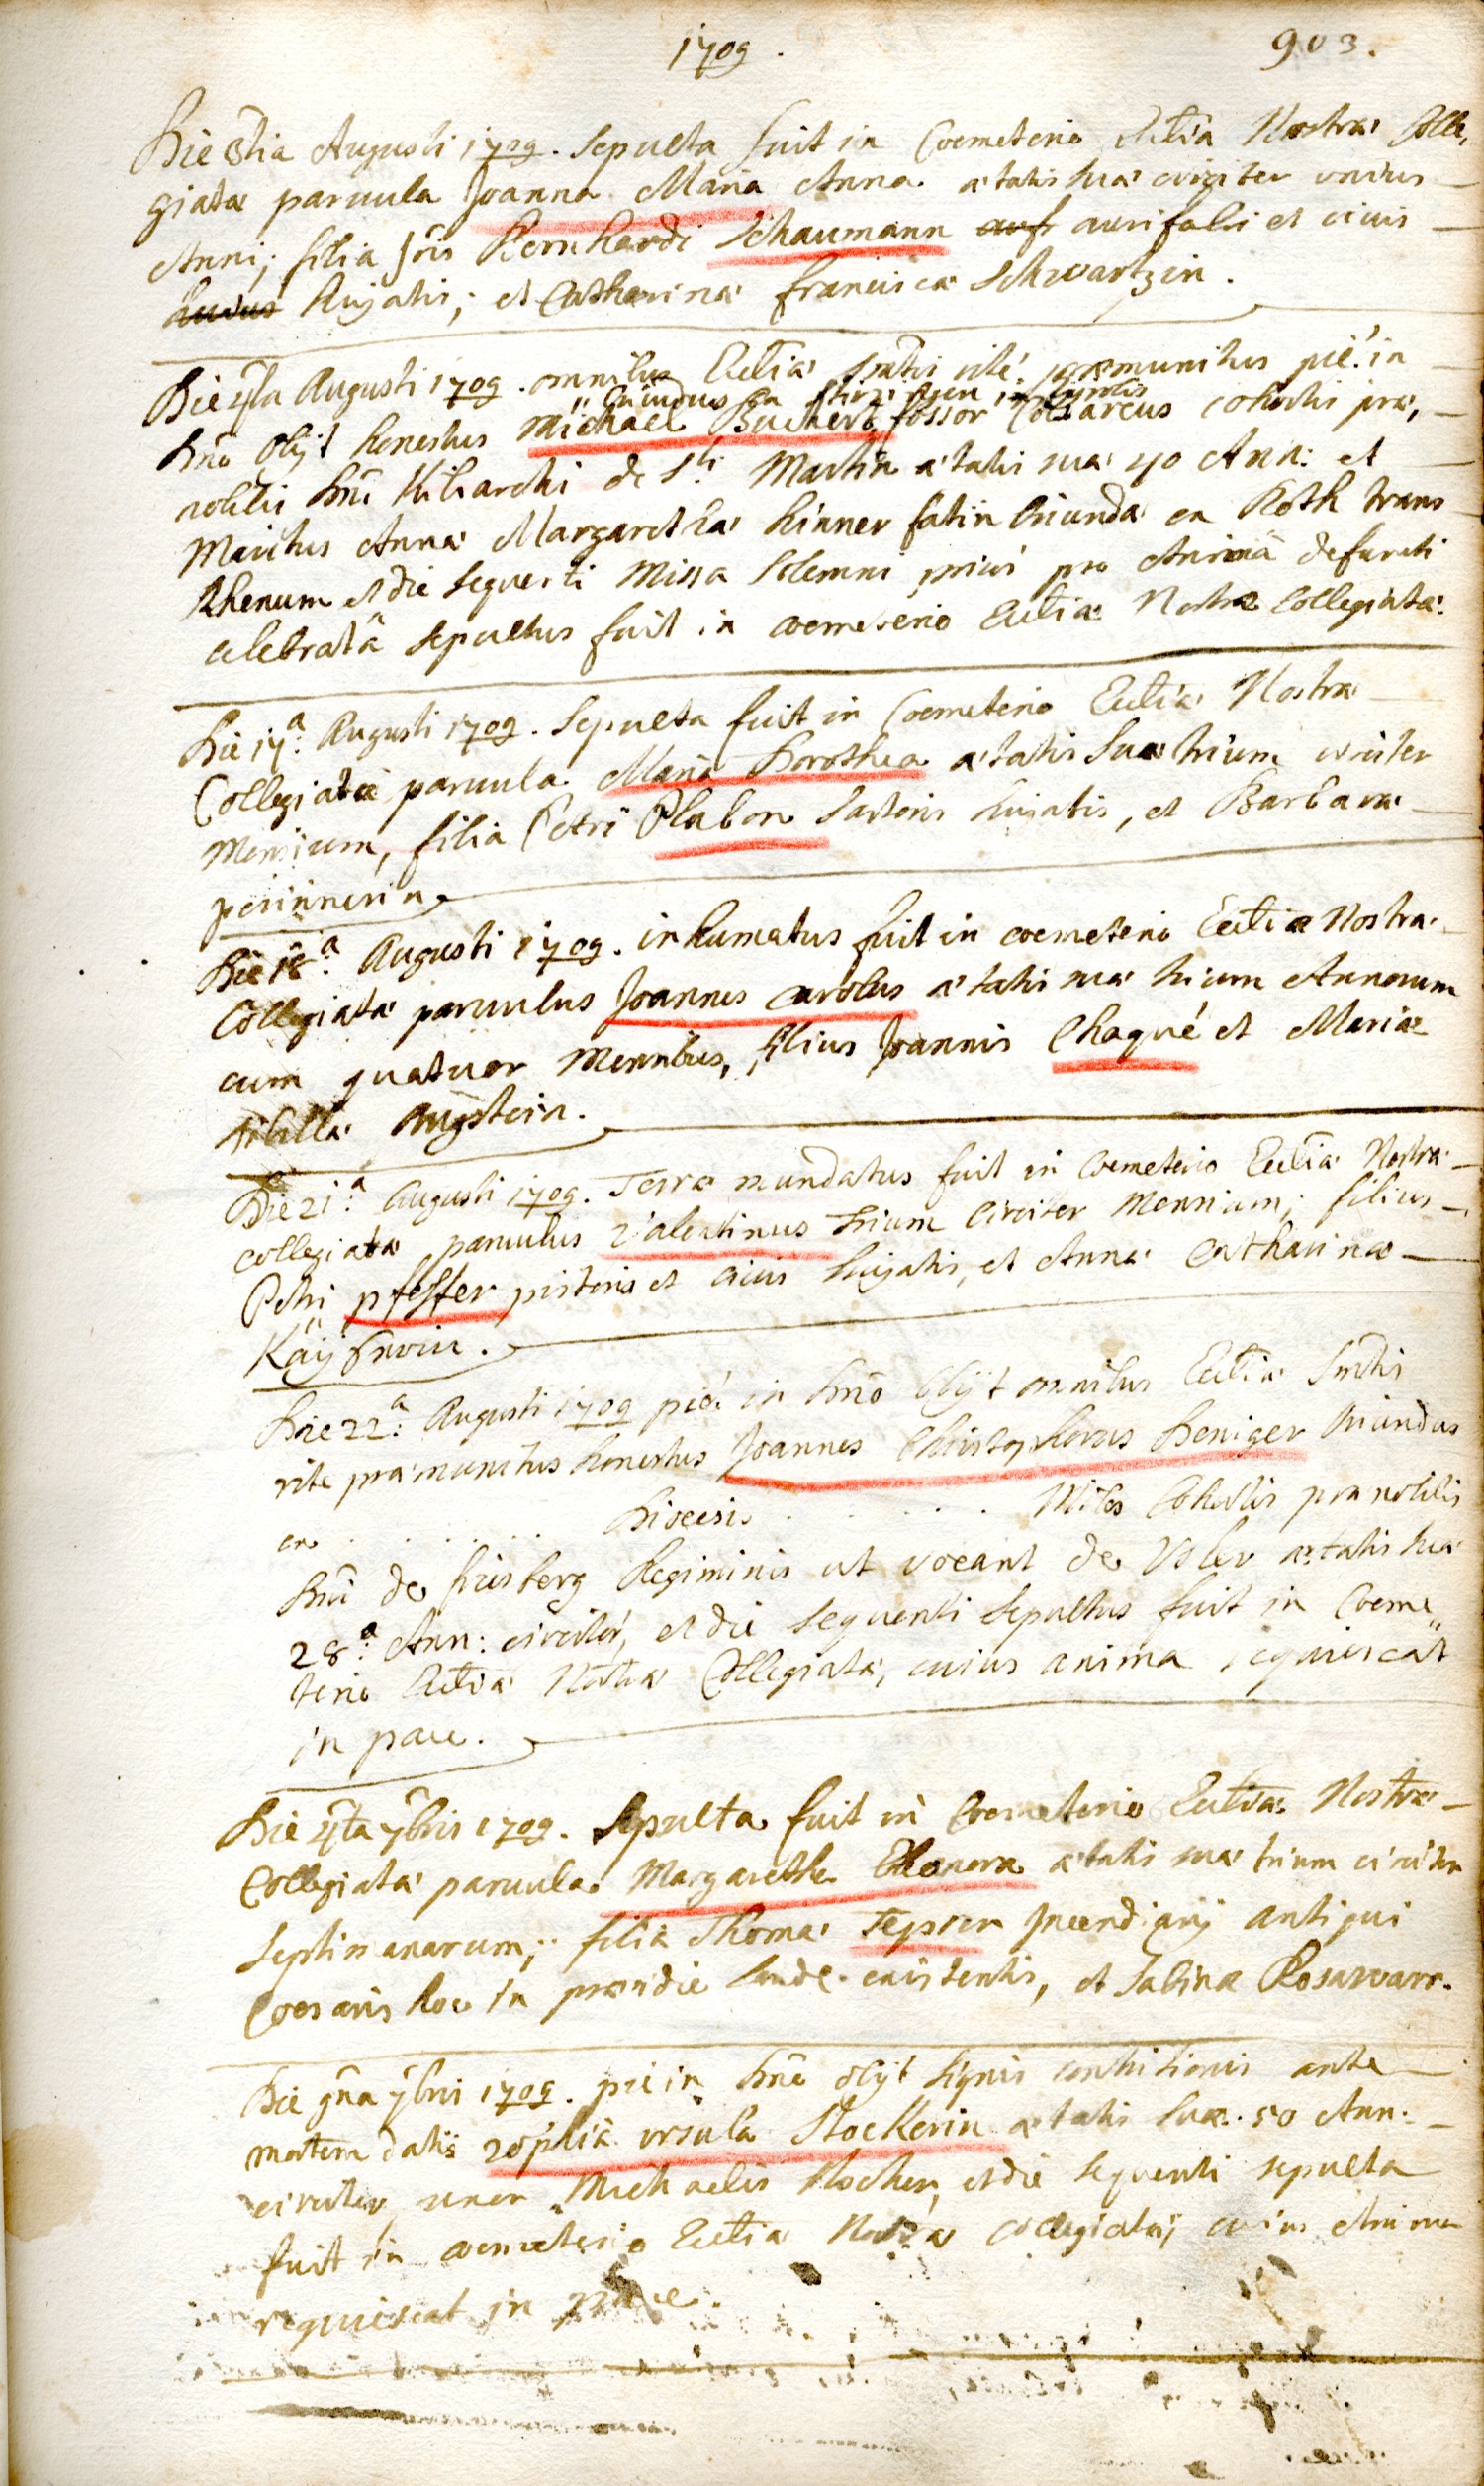 1709. 903.
Die 8tia Augusti 1709. Sepulta fuit in Coemeterio Eccliae Nostrae Colle,
giatae paruula Joanna Maria Anna aetatis suae circiter unius
Anni; filia Jois Bernhardi Schaumann aurifabri et ciuis
hujatis; et Catharinae Franciscae Schwartzin.
Die 4ta Augusti 1709. omnibus Eccliae Smtis rité praemunitus pié in
Dno obijt honestus Michael Buchert fossor cohortis prae,
nobilis Dni Kiliarchi de St. Martin aetatis suae 40 Ann: et
Maritus Annae Margarethae Oriunda ex Roth trans
Rhenum et die sequenti Missa Solemni prius pro Animâ defuncti
celebratâ sepultus fuit in coemeterio Eccliae Nostrae Collegiatae.
Die 17a Augusti 1709. Sepulta fuit in Coemeterio Eccliae Nostrae
Collegiatae paruula Maria Dorothea aetatis Suae trium circiter
Mensium, filia Petri Plabon Sartoris hujatis, et Barbarae
perinnerin.
Die 18a Augusti 1709. inhumatus fuit in coemeterio Eccliae Nostrae
Collegiatae paruulus Joannes Carolus aetatis suae trium Annorum
cum quatuor Mensibus, filius Joannis Chaqué et Mariae
Sibillae Augstein.
Die 21a Augusti 1709. Terrae mundatus fuit in Coemeterio Eccliae Nostrae
collegiatae paruulus Valentinus trium Circiter Mensium; filius
Petri pfeffer pistoris et ciuis hujatis, et Annae Catharinae
Die 22a Augusti 1709 pié in Dno Obijt omnibus Eccliae Smtis
rite praemunitus honestus Joannes Christophorus Heniger Oriundus
ex . . . . . . Dioecesis . . . . . Miles Cohortis praenobilis
Dni de frisberg Regiminis ut vocant de aetatis suae
28a Ann: circiter, et die sequenti sepultus fuit in Coeme„
terio Eccliae Nostrae Collegiatae, cuius anima requiescat
in pace.
Die 4ta 7bris 1709. Sepulta fuit in Coemeterio Eccliae Nostrae
Collegiatae paruula Margaretha Eleonora aetatis suae trium circiter
Septimanarum; filia Thomae Tepser Incendiarij antiqui
Coesaris hoc in existentis, et Sabinae
Die 9na 7bris 1709. pie in Dno obijt signis contritionis ante
mortem datis Zophia Ursula Stockerin aetatis Suae 50 Ann.
circiter uxor Michaelis Stocker, et die sequenti sepulta
fuit in coemeterio Eccliae Nostrae collegiatae; cuius Anima
requiescat in pace.